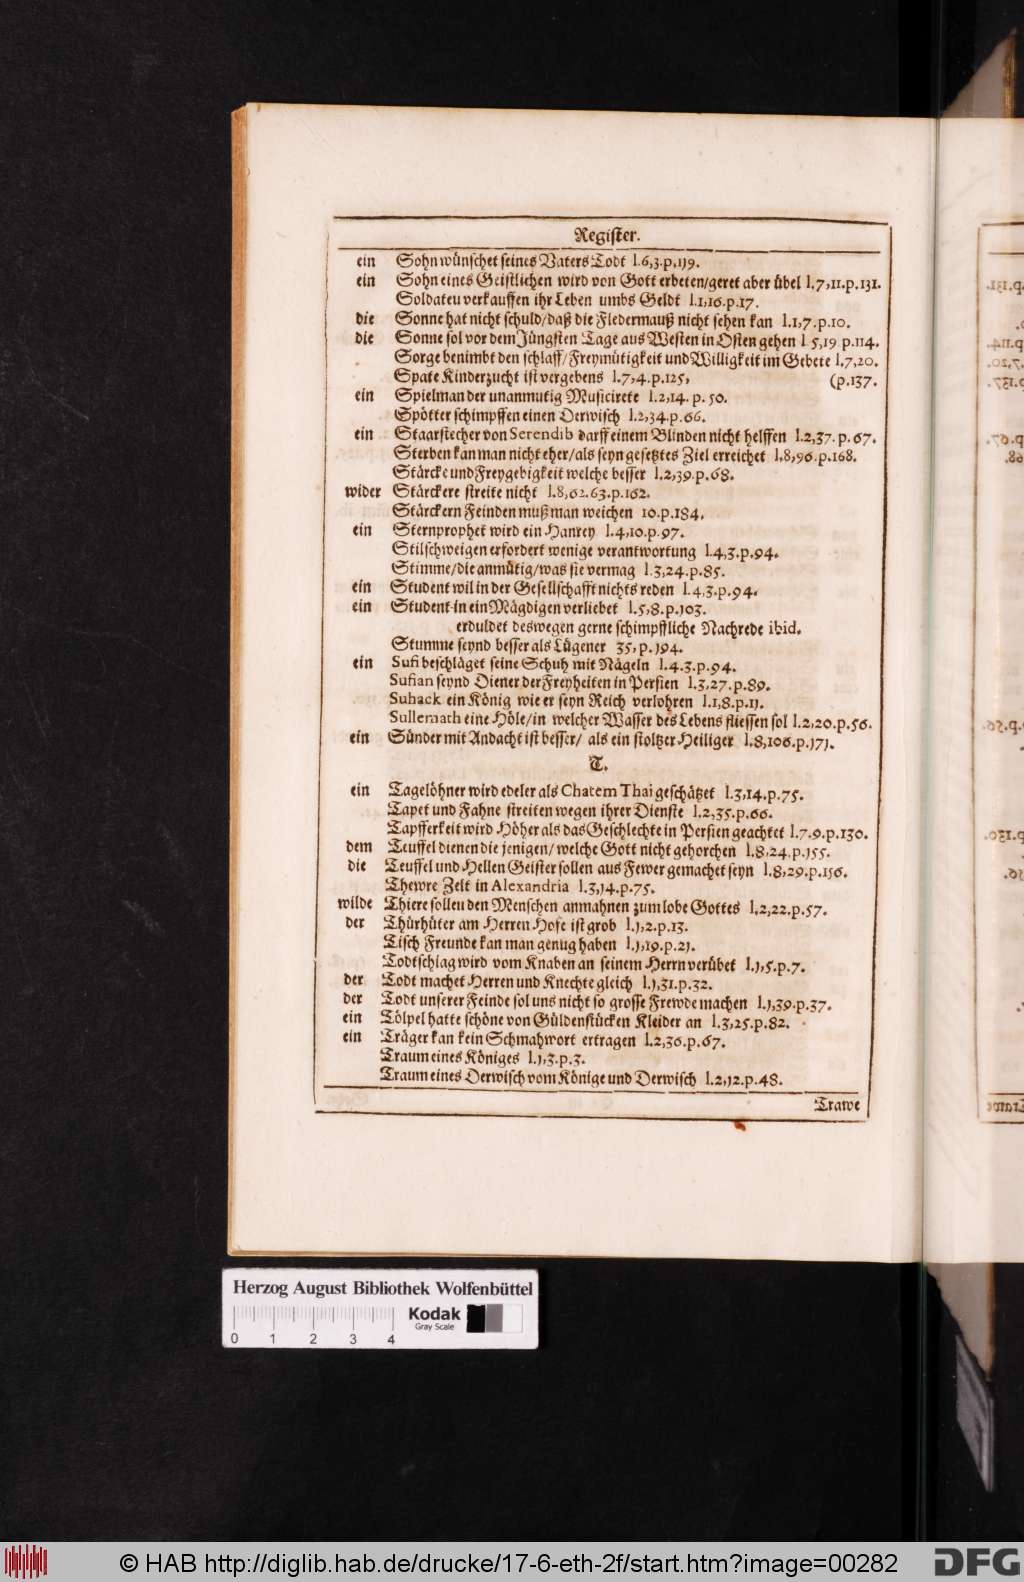 Register.
ein Sohn wünschet seines Vaters Todt l.6,3.p,119.
ein Sohn eines Geistlichen wird von Gott erbeten/geret aber übel l.7,11.p.131.
Soldaten verkauffen ihr Leben umbs Geldt l.1,16.p.17.
die Sonne hat nicht schuld/daß die Fledermauß nicht sehen kan l.1,7.p.10.
die Sonne sol vor dem Jüngsten Tage aus Westen in Osten gehen l 5,19 p.114.
Sorge benimbt den schlaff/Freymütigkeit und Willigkeit im Gebete l.7,20.
Spate Kinderzucht ist vergebens l.7,4.p.125, (p.137.
ein Spielman der unanmutig Musicirete l.2,14. p. 50.
Spötter schimpffen einen Derwisch l.2,34.p.66.
ein Staarstecher von Serendib darff einem Blinden nicht helffen l.2,37. p.67.
Sterben kan man nicht eher/als seyn gesetztes Ziel erreichet l.8,96.p.168.
Stärcke und Freygebigkeit welche besser l.2,39.p.68.
wider Stärckere streite nicht l.8,62.63.p.162.
Stärckern Feinden muß man weichen 10.p.184.
ein Sternprophet wird ein Hanrey l.4,10.p.97.
Stilschweigen erfordert wenige verantwortung l.4,3.p.94.
Stimme/die anmütig/was sie vermag l.3,24.p.85.
ein Student wil in der Gesellschafft nichts reden l.4,3.p.94.
ein Student in ein Mägdigen verliebet l.5,8.p.103.
erduldet deswegen gerne schimpffliche Nachrede ibid.
Stumme seynd besser als Lügener 35,p.194.
ein Sufi beschläget seine Schuh mit Nägeln l.4.3.p.94.
Sufian seynd Diener der Freyheiten in Persien l.3,27.p.89.
Suhack ein König wie er seyn Reich verlohren l.1,8.p.11.
Sullemath eine Höle/in welcher Wasser des Lebens fliessen sol l.2,20.p.56.
ein Sünder mit Andacht ist besser/ als ein stoltzer Heiliger l.8,106.p.171.
T.
ein Tagelöhner wird edeler als Chatem Thai geschätzet l.3,14.p.75.
Tapet und Fahne streiten wegen ihrer Dienste l.2,35.p.66.
Tapfferkeit wird Höher als das Geschlechte in Persien geachtet l.7.9.p.130.
dem Teuffel dienen die jenigen/welche Gott nicht gehorchen l.8,24.p.155.
die Teuffel und Hellen Geister sollen aus Fewer gemachet seyn l.8,29.p.156.
Thewre Zelt in Alexandria l.3,14.p.75.
wilde Thiere sollen den Menschen anmahnen zum lobe Gottes l.2,22.p.57.
der Thürhüter am Herren Hofe ist grob l.1,2.p.13.
Tisch Freunde kan man genug haben l.1,19.p.21.
Todtschlag wird vom Knaben an seinem Herrn verübet l.1,5.p.7.
der Todt machet Herren und Knechte gleich l.1,31.p.32.
der Todt unserer Feinde sol uns nicht so grosse Frewde machen l.1,39.p.37.
ein Tölpel hatte schöne von Güldenstücken Kleider an l.3,25.p.82.
ein Träger kan kein Schmahwort ertragen l.2,36.p.67.
Traum eines Königes l.1,3.p.3.
Traum eines Derwisch vom Könige und Derwisch l.2,12.p.48.
Trawe
Herzog August Bibliothek Wolfenbüttel
Kodak
Gray Scale
0 1 2 3 4
© HAB http://diglib.hab.de/drucke/17-6-eth-2f/start.htm?image=00282
DFG